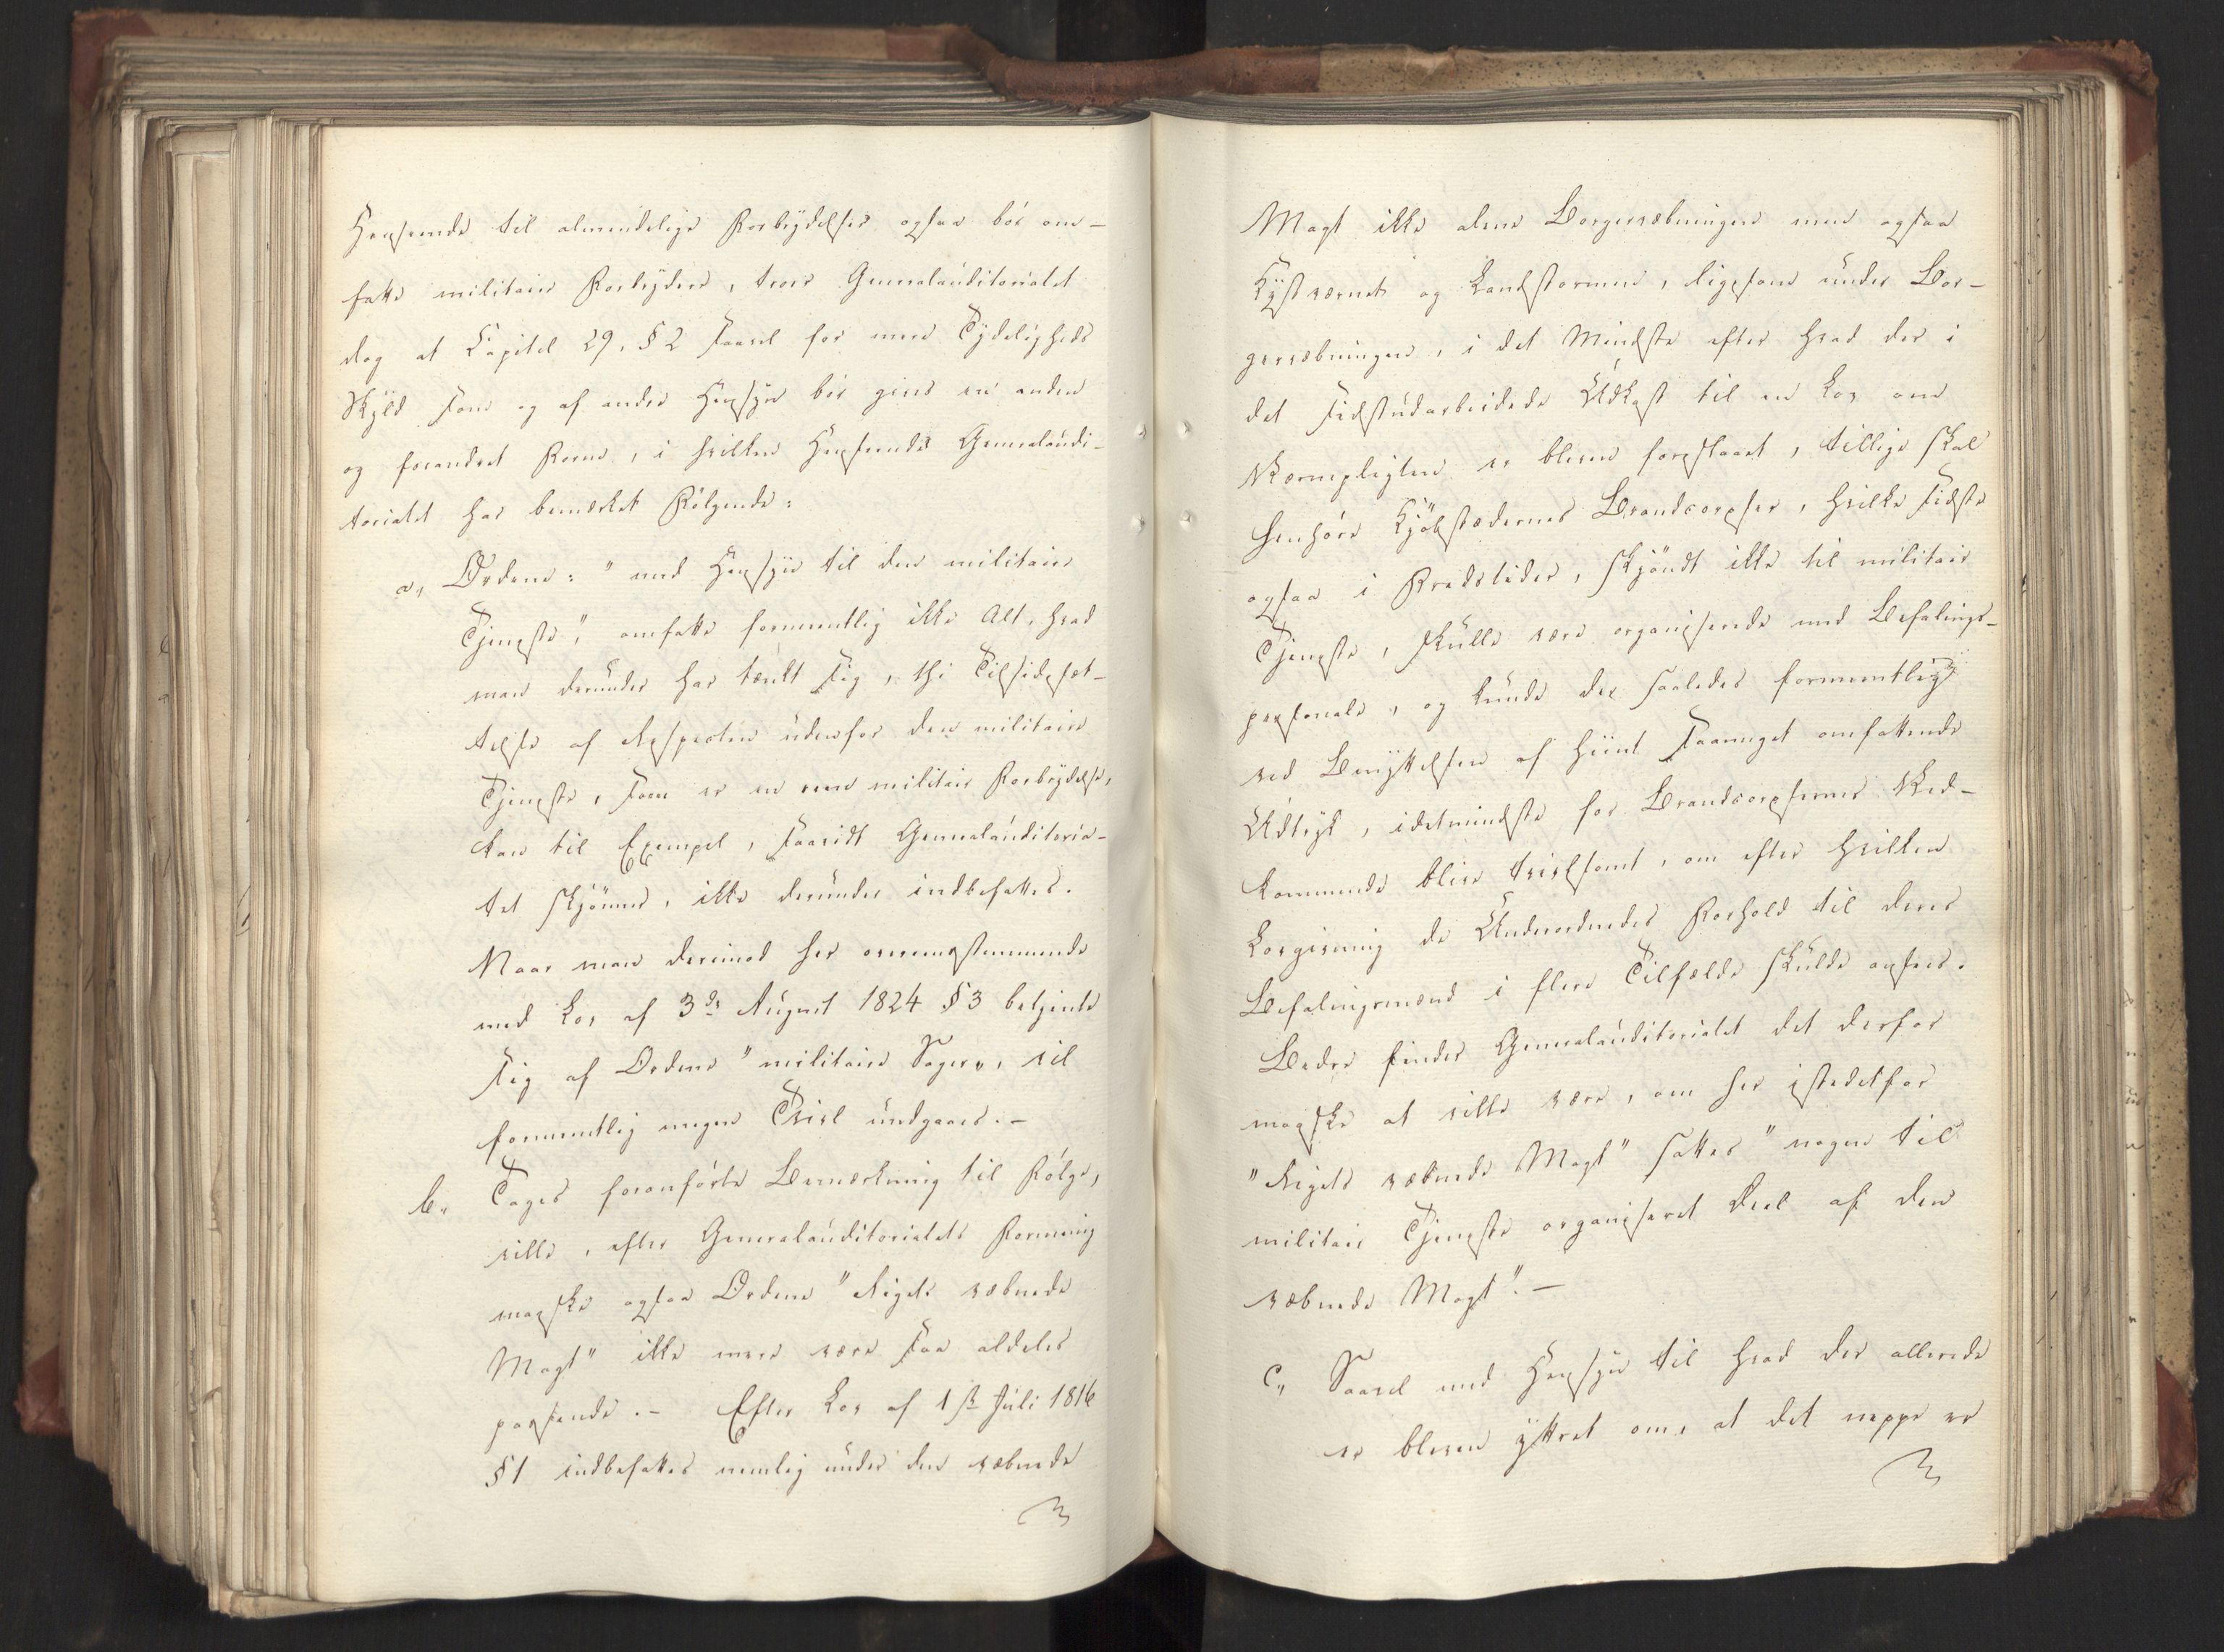 Henseende til almindelige Forbrydelser ogsaa bör om-
fatte militaire Forbrydere, troer Generalauditorialet
dog at Capitel 29, § 2 saavel for mere Tydeligheds
Skyld som og af andre Hensyn bör gives en anden
og forandret Form, i hvilken Henseende Generalaudi-
torialet har bemærket Fölgende:
a„ Ordene: "med Hensyn til den militaire
Tjeneste", omfatte formeentlig ikke Alt, hvad
man derunder har tænkt sig, thi Tilsidesæt-
telse af Respecten udenfor den militaire
Tjeneste, som er en reen militair Forbrydelse,
kan til Exempel, saavidt Generalauditoria-
let skjönner, ikke derunder indbefattes.
Naar man derimod her overeensstemmende
med Lov af 3de August 1824 § 3 betjente
sig af Ordene "militaire Sager„, vil
formeentlig megen Tvivl undgaaes. –
b„ Tages foranförte Bemærkning til Fölge,
ville, efter Generalauditorialets Formening
maaskee ogsaa Ordene "Rigets væbnede
Magt" ikke mere være saa aldeles
passende. – Efter Lov af 1ste Juli 1816
§ 1 indbefattes nemlig under den væbnede
Magt ikke alene Borgervæbningen men ogsaa
Kystværnet og Landstormen, ligesom under Bor-
gervæbningen, i det Mindste efter hvad der i
det sidstudarbeidede Udkast til en Lov om
Værnepligten er bleven foreslaaet, tillige skal
henhöre Kjöbstædernes Brandcorpser, hvilke sidste
ogsaa i Fredstider, skjöndt ikke til militair
Tjeneste, skulle være organiserede med Befalings-
personale, og kunde der saaledes formeentlig
ved Benyttelsen af hiint saameget omfattende
Udtryk, idetmindste for Brandcorpsernes Ved-
kommende blive tvivlsomt, om efter hvilken
Lovgivning de Underordnedes Forhold til deres
Befalingsmænd i flere Tilfælde skulde ansees.
Bedre finder Generalauditorialet det derfor
maaskee at ville være, om her istedetfor
"Rigets væbnede Magt" sattes "nogen til
militair Tjeneste organiseret Deel af den
væbnede Magt". –
c„ Saavel med Hensyn til hvad der allerede
er bleven yttret om, at det neppe er